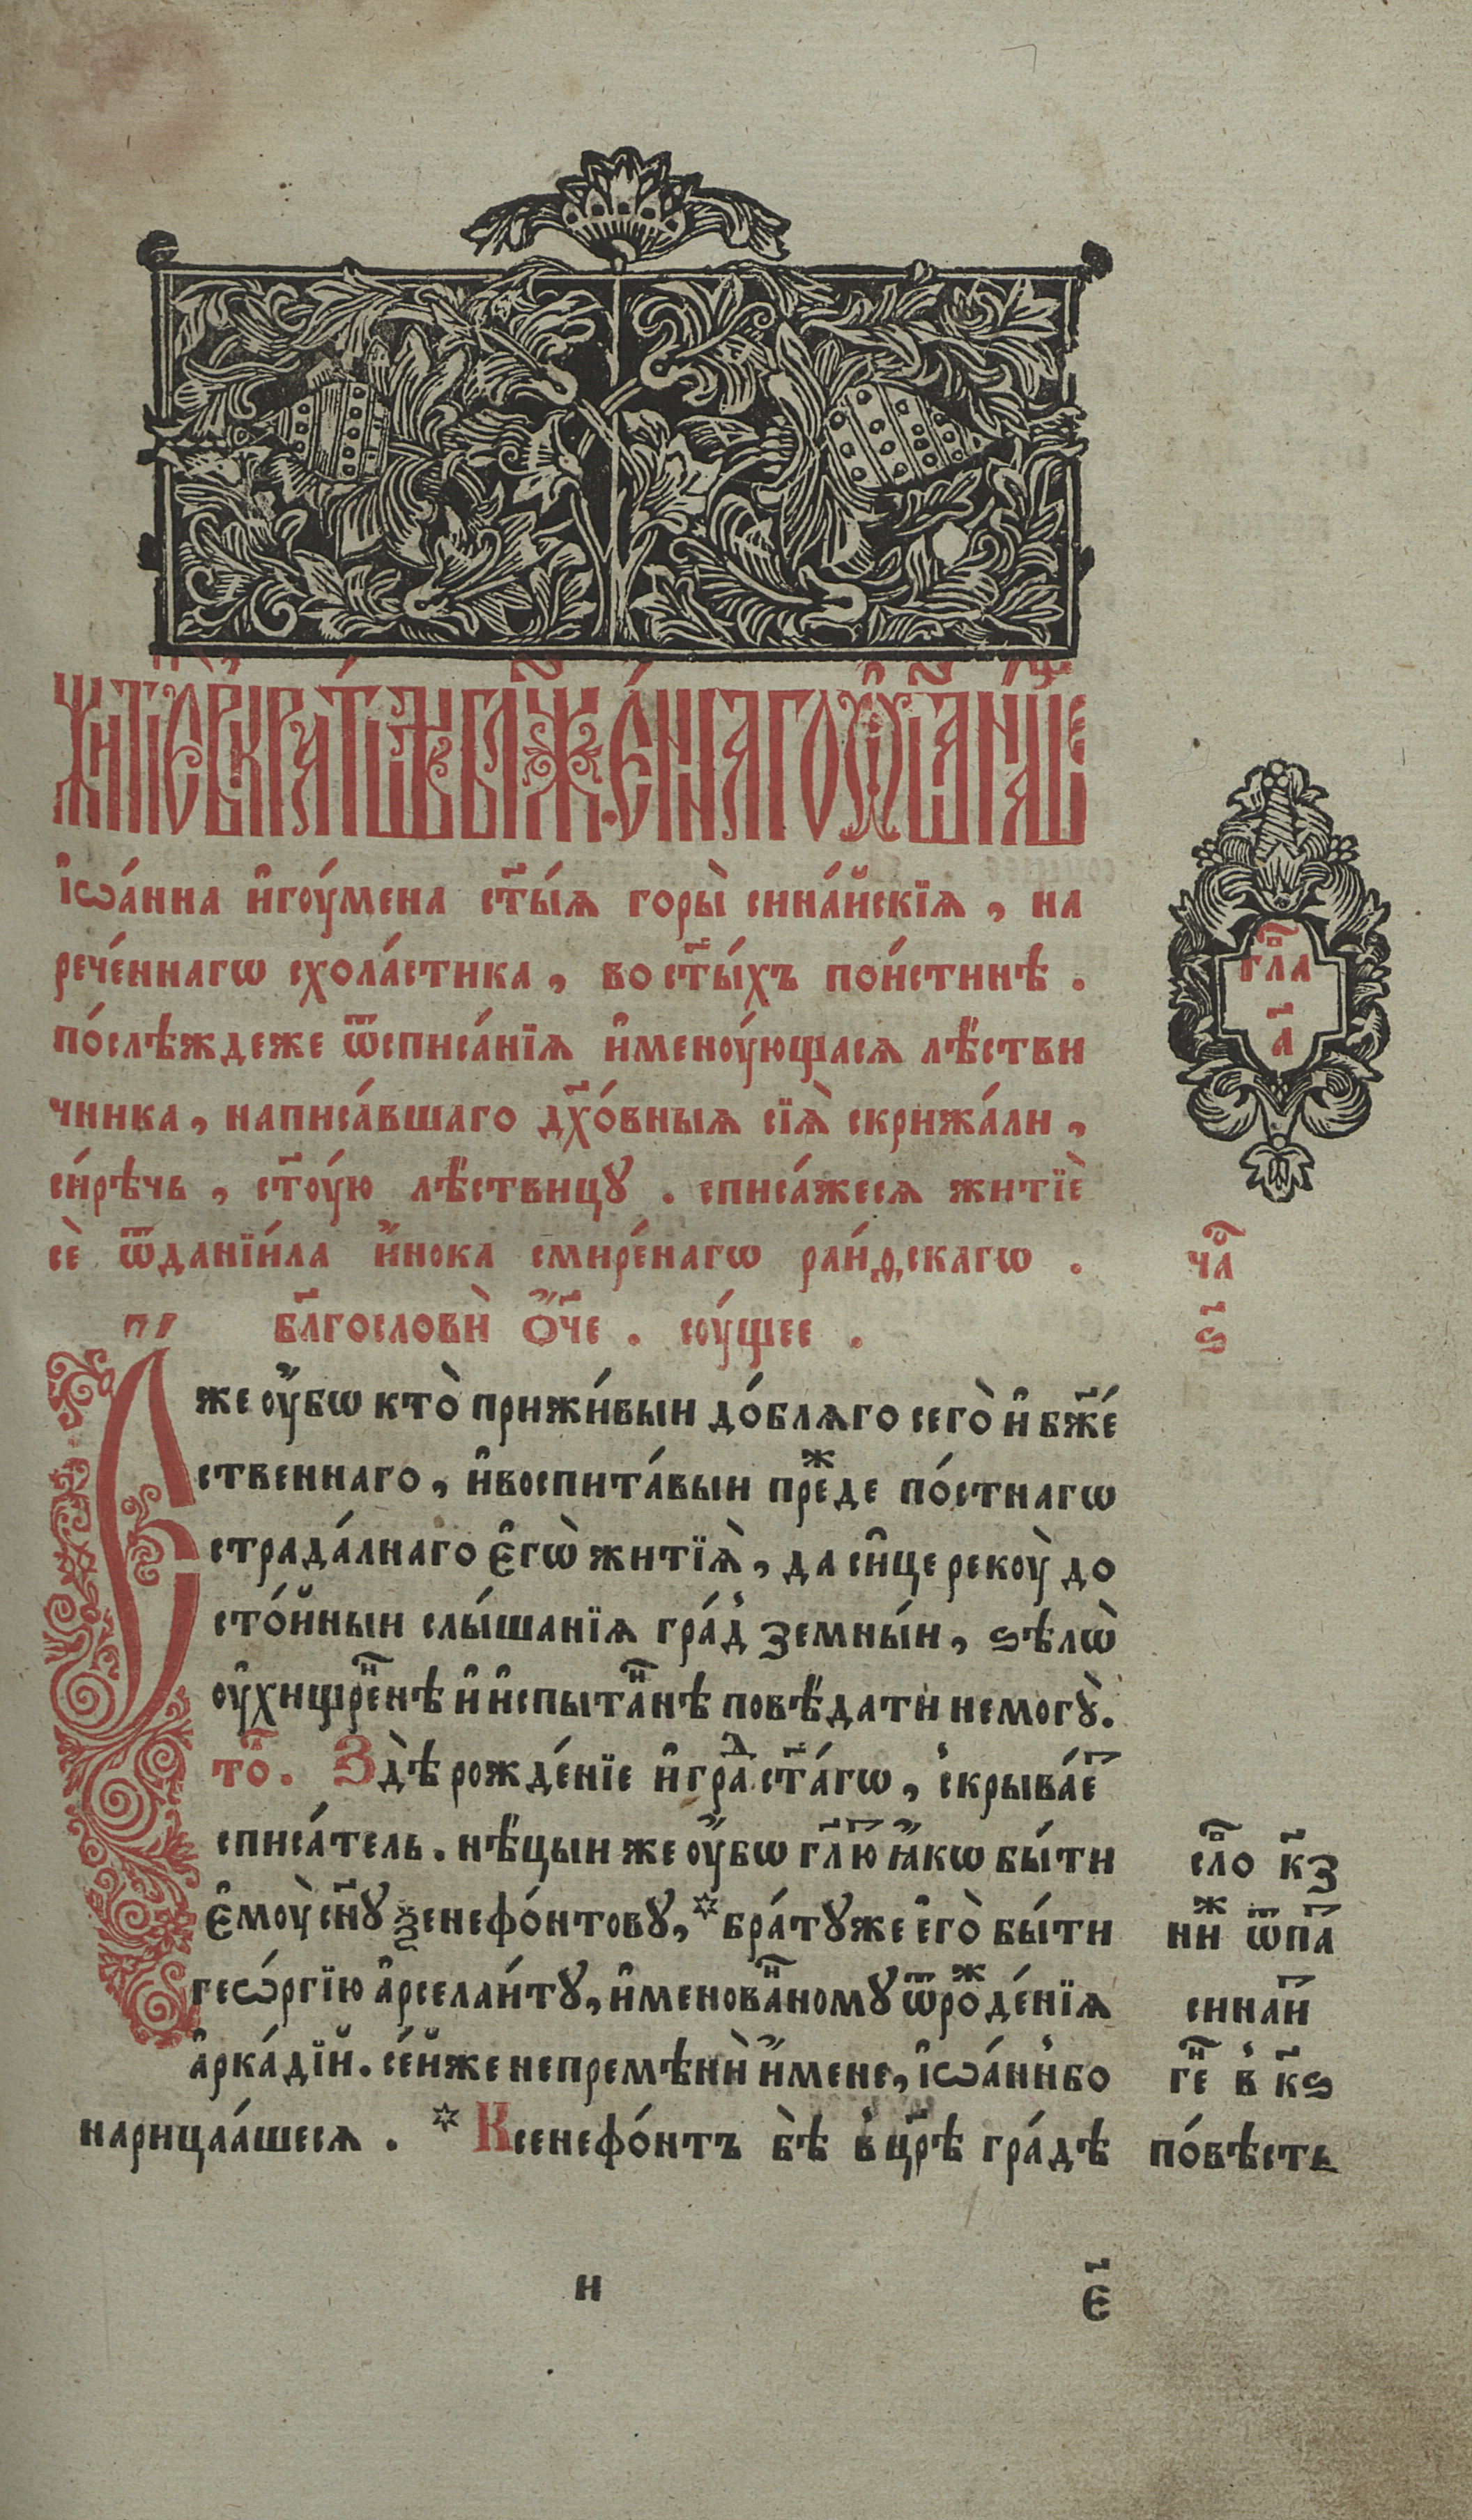 Житїе вкратцѣ блаженнаго ѿца нашего
і҆ѡа́нна и҆гоу́мена ст҃ы́ѧ горы̀ сина́йскїѧ , на
рече́ннагѡ схола́стика , во ст҃ы́хъ пои́стинѣ .
по́слѣждеже ѿсписа́нїѧ и҆меноу́ющасѧ лѣ́стви
чника , написа́вшаго дх҃о́вныѧ сїѧ̀ скрижа́ли ,
си́рѣчь , ст҃оу́ю лѣ́ствицꙋ . списа́жесѧ житїѐ
сѐ ѿданїи́ла и҆́нока смире́нагѡ раи́дскагѡ .
бл҃гословѝ ѻ҆́ч҃е . соу́щее .
гл҃а
а҃
ча
ѕ҃
Є҆́же оу҆́бѡ кто̀ прижи́выи до́блѧго сего̀ и҆ бж҃е́
ственнаго , и҆воспита́выи преⷤде по́стнагѡ
страда́лнаго є҆гѡ̀ житїѧ̀ , да си҆це рекоу̀ до
сто́йныи слы́шанїѧ гра́д̾ земны́и , ѕѣлѡ̀
оу҆хищреⷩ҇нѣ и҆ и҆спытаⷩ҇нѣ повѣ́дати немогꙋ̀ .
то . Здѣ̀ рожде́нїе и҆ граⷣ ст҃а́гѡ , с̾крыва́еⷮ
списа́тель . нѣ́цыи же оу҆́бѡ гл҃юⷮ ꙗ҆́кѡ бы́ти
є҆моу̀ сн҃ꙋ ѯенефо́нтовꙋ , * бра́тꙋже є҆го̀ бы́ти
геѡ́ргїю а҆рселаи́тꙋ , и҆менованⷩ҇омꙋ ѿроⷤде́нїѧ
а҆рка́дїй . се́йже непремѣнѝ и҆́мене , і҆ѡа́нн̾бо
нарицаа́шесѧ . * Ксенефо́нтъ бѣ̀ в̾цр҃ѣ гра́дѣ
сло к҃з
ниⷤ ѿпа
синаи
ге в̾ к҃ѕ
по́вѣсть
и
є҃